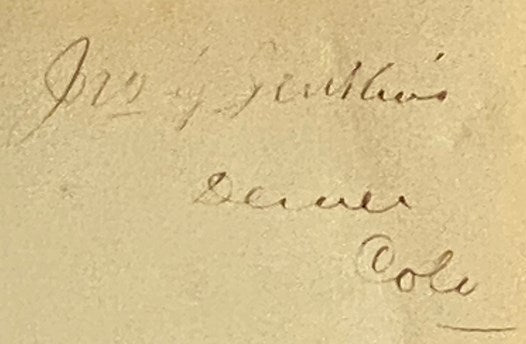 Jno Jenkins
Denver
Colo